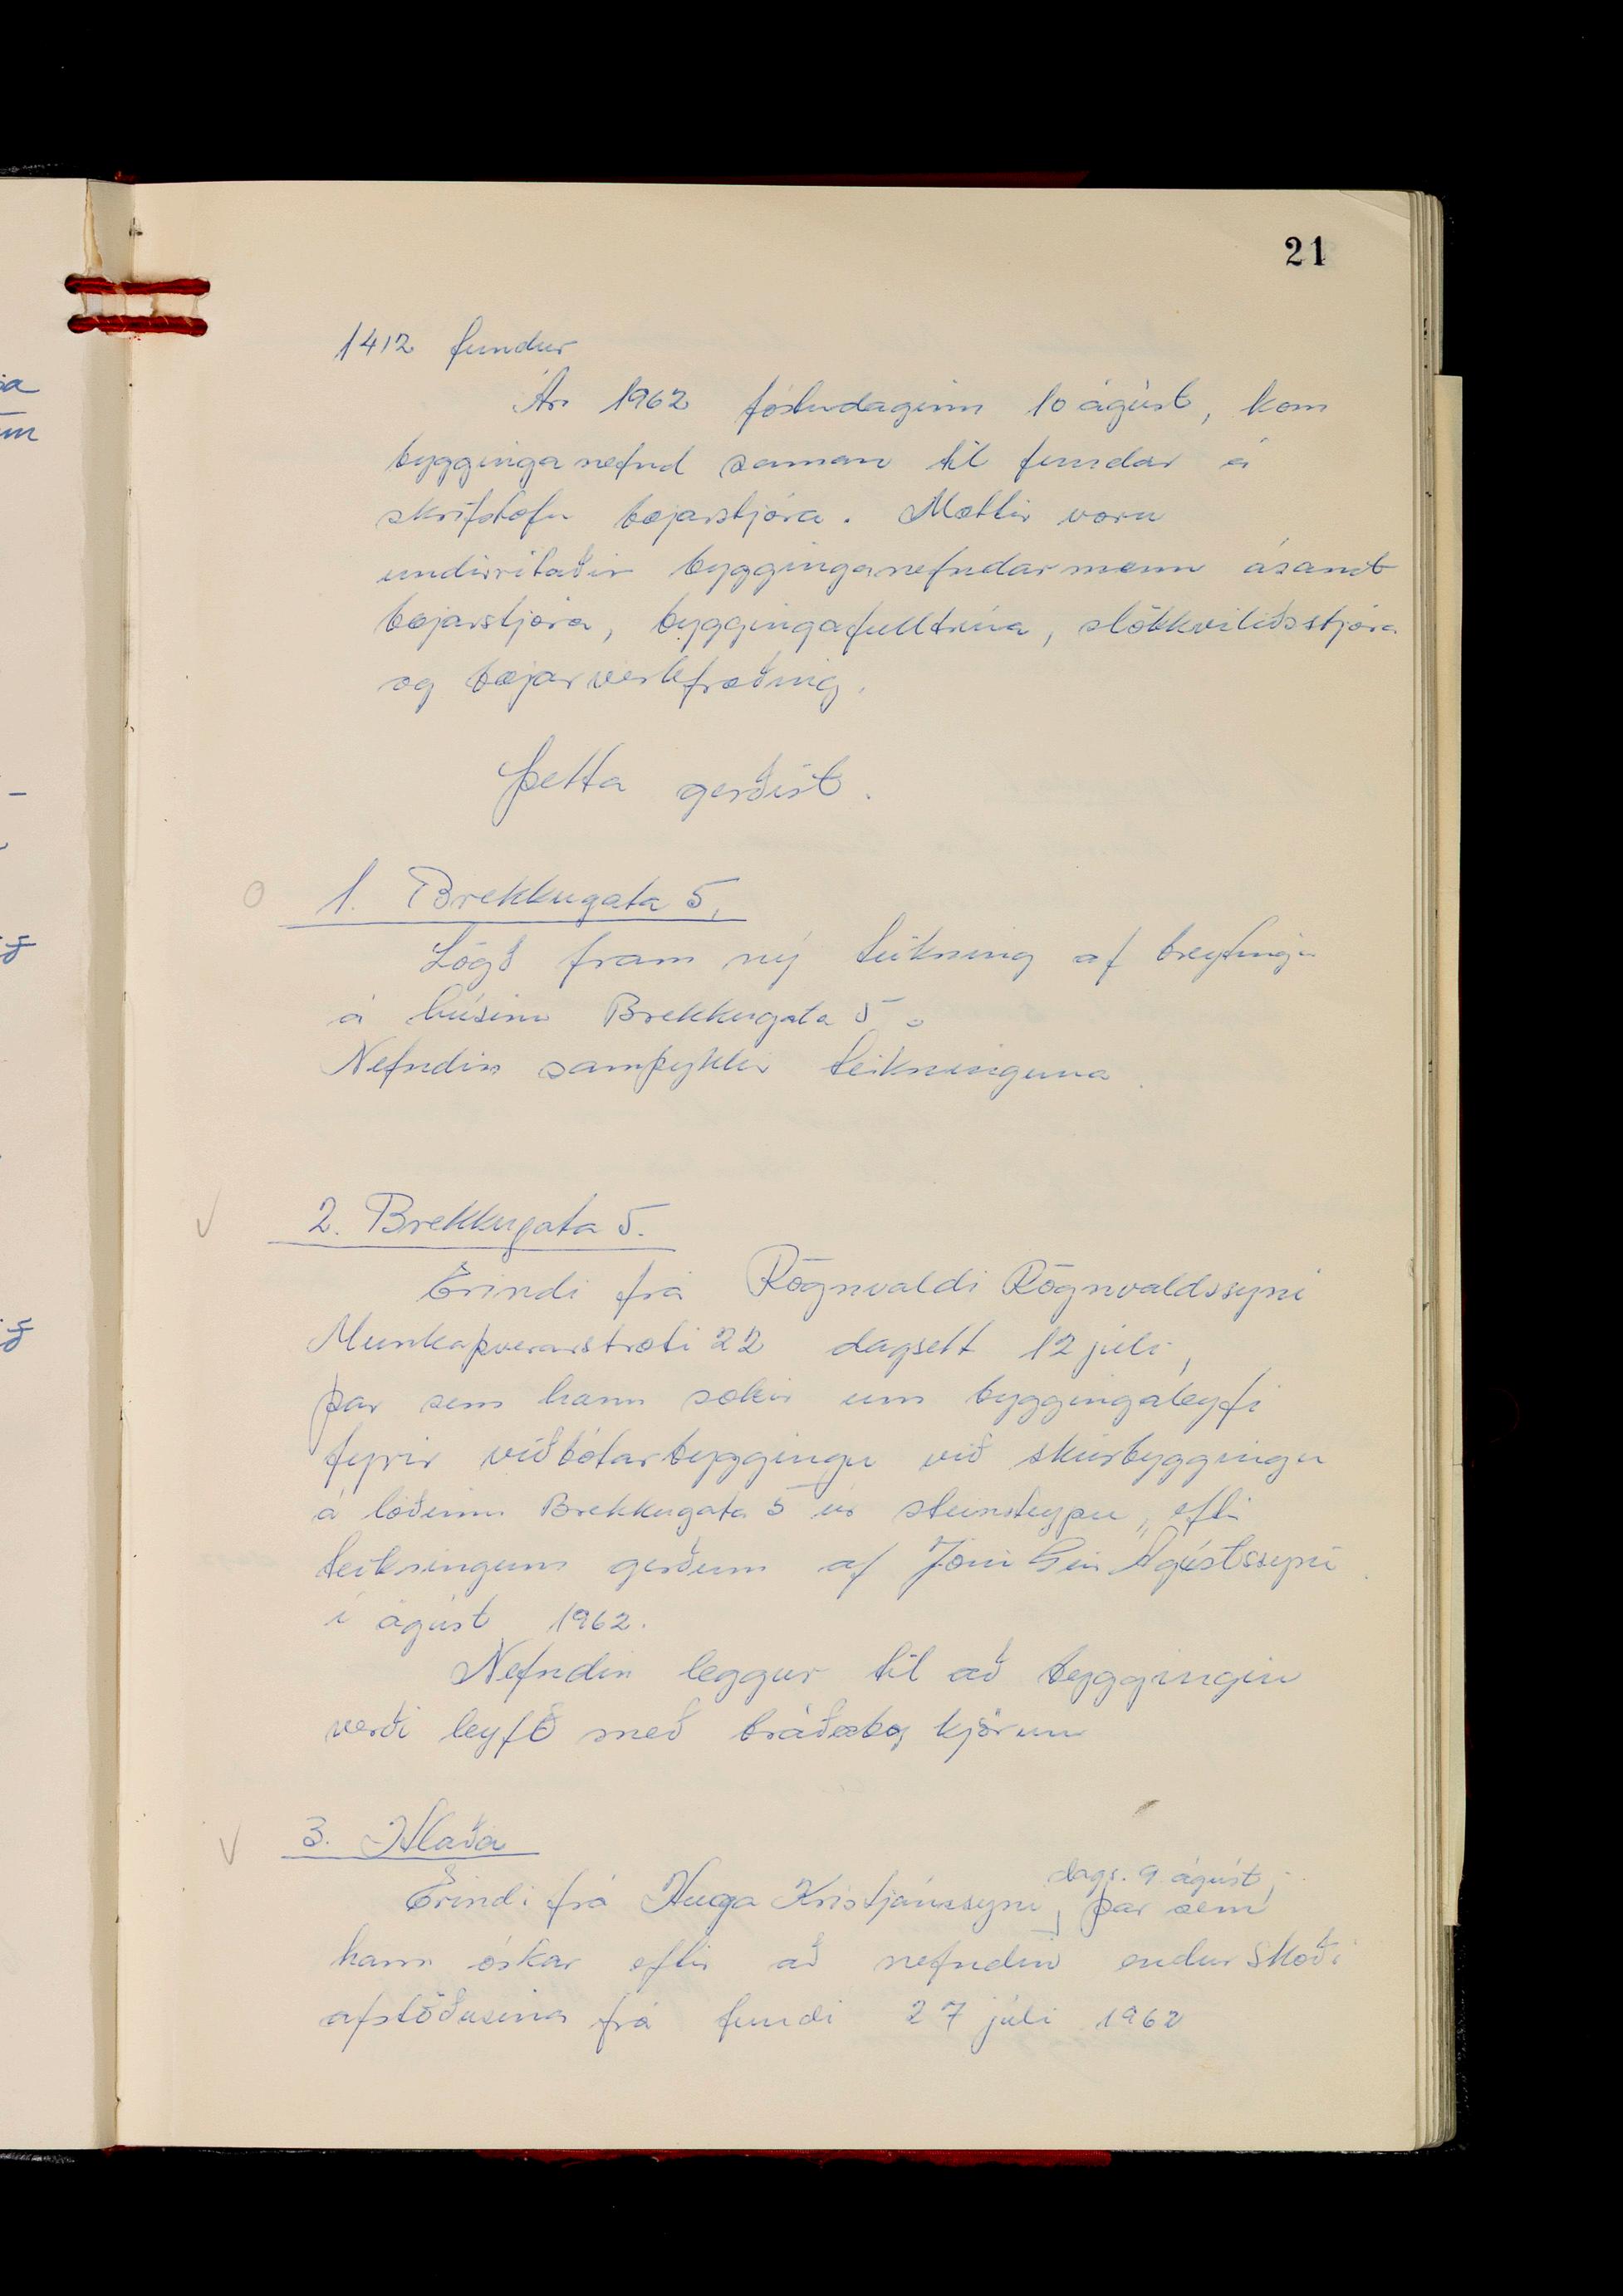 21
1412 fundur
Ár 1962 föstudaginn 10 ágúst, kom
bygginganefnd saman til fundar á
skrifstofu bæjarstjóra. Mættir voru
undirritaðir bygginganefndarmenn ásamt
bæjarstjóra, byggingafulltrúa, slökkviliðsstjóra
og bæjarverkfræðing.
Þetta gerðist.
1. Brekkugata 5.
Lögð fram ný teikning af breytingu
á húsinu Brekkugata 5.
Nefndin samþykkir teikninguna.
2. Brekkugata 5.
Erindi frá Rögnvaldi Rögnvaldssyni
Munkaþverarstræti 22 dagsett 12 júlí,
þar sem hann sækir um byggingaleyfi
fyrir viðbótarbyggingu við skúrbyggingu
á lóðinni Brekkugata 5 úr steinsteypu, eftir
teikningum gerðum af Jóni Geir Ágústssyni
í ágúst 1962.
Nefndin leggur til að byggingin
verði leyfð með kjörum
3. Hlaða
dags. 9 ágúst,
Erindi frá Huga Kristjánssyni, þar sem
hann óskar eftir að nefndin endurskoði
afstöðu sína frá fundi 27 júlí 1962